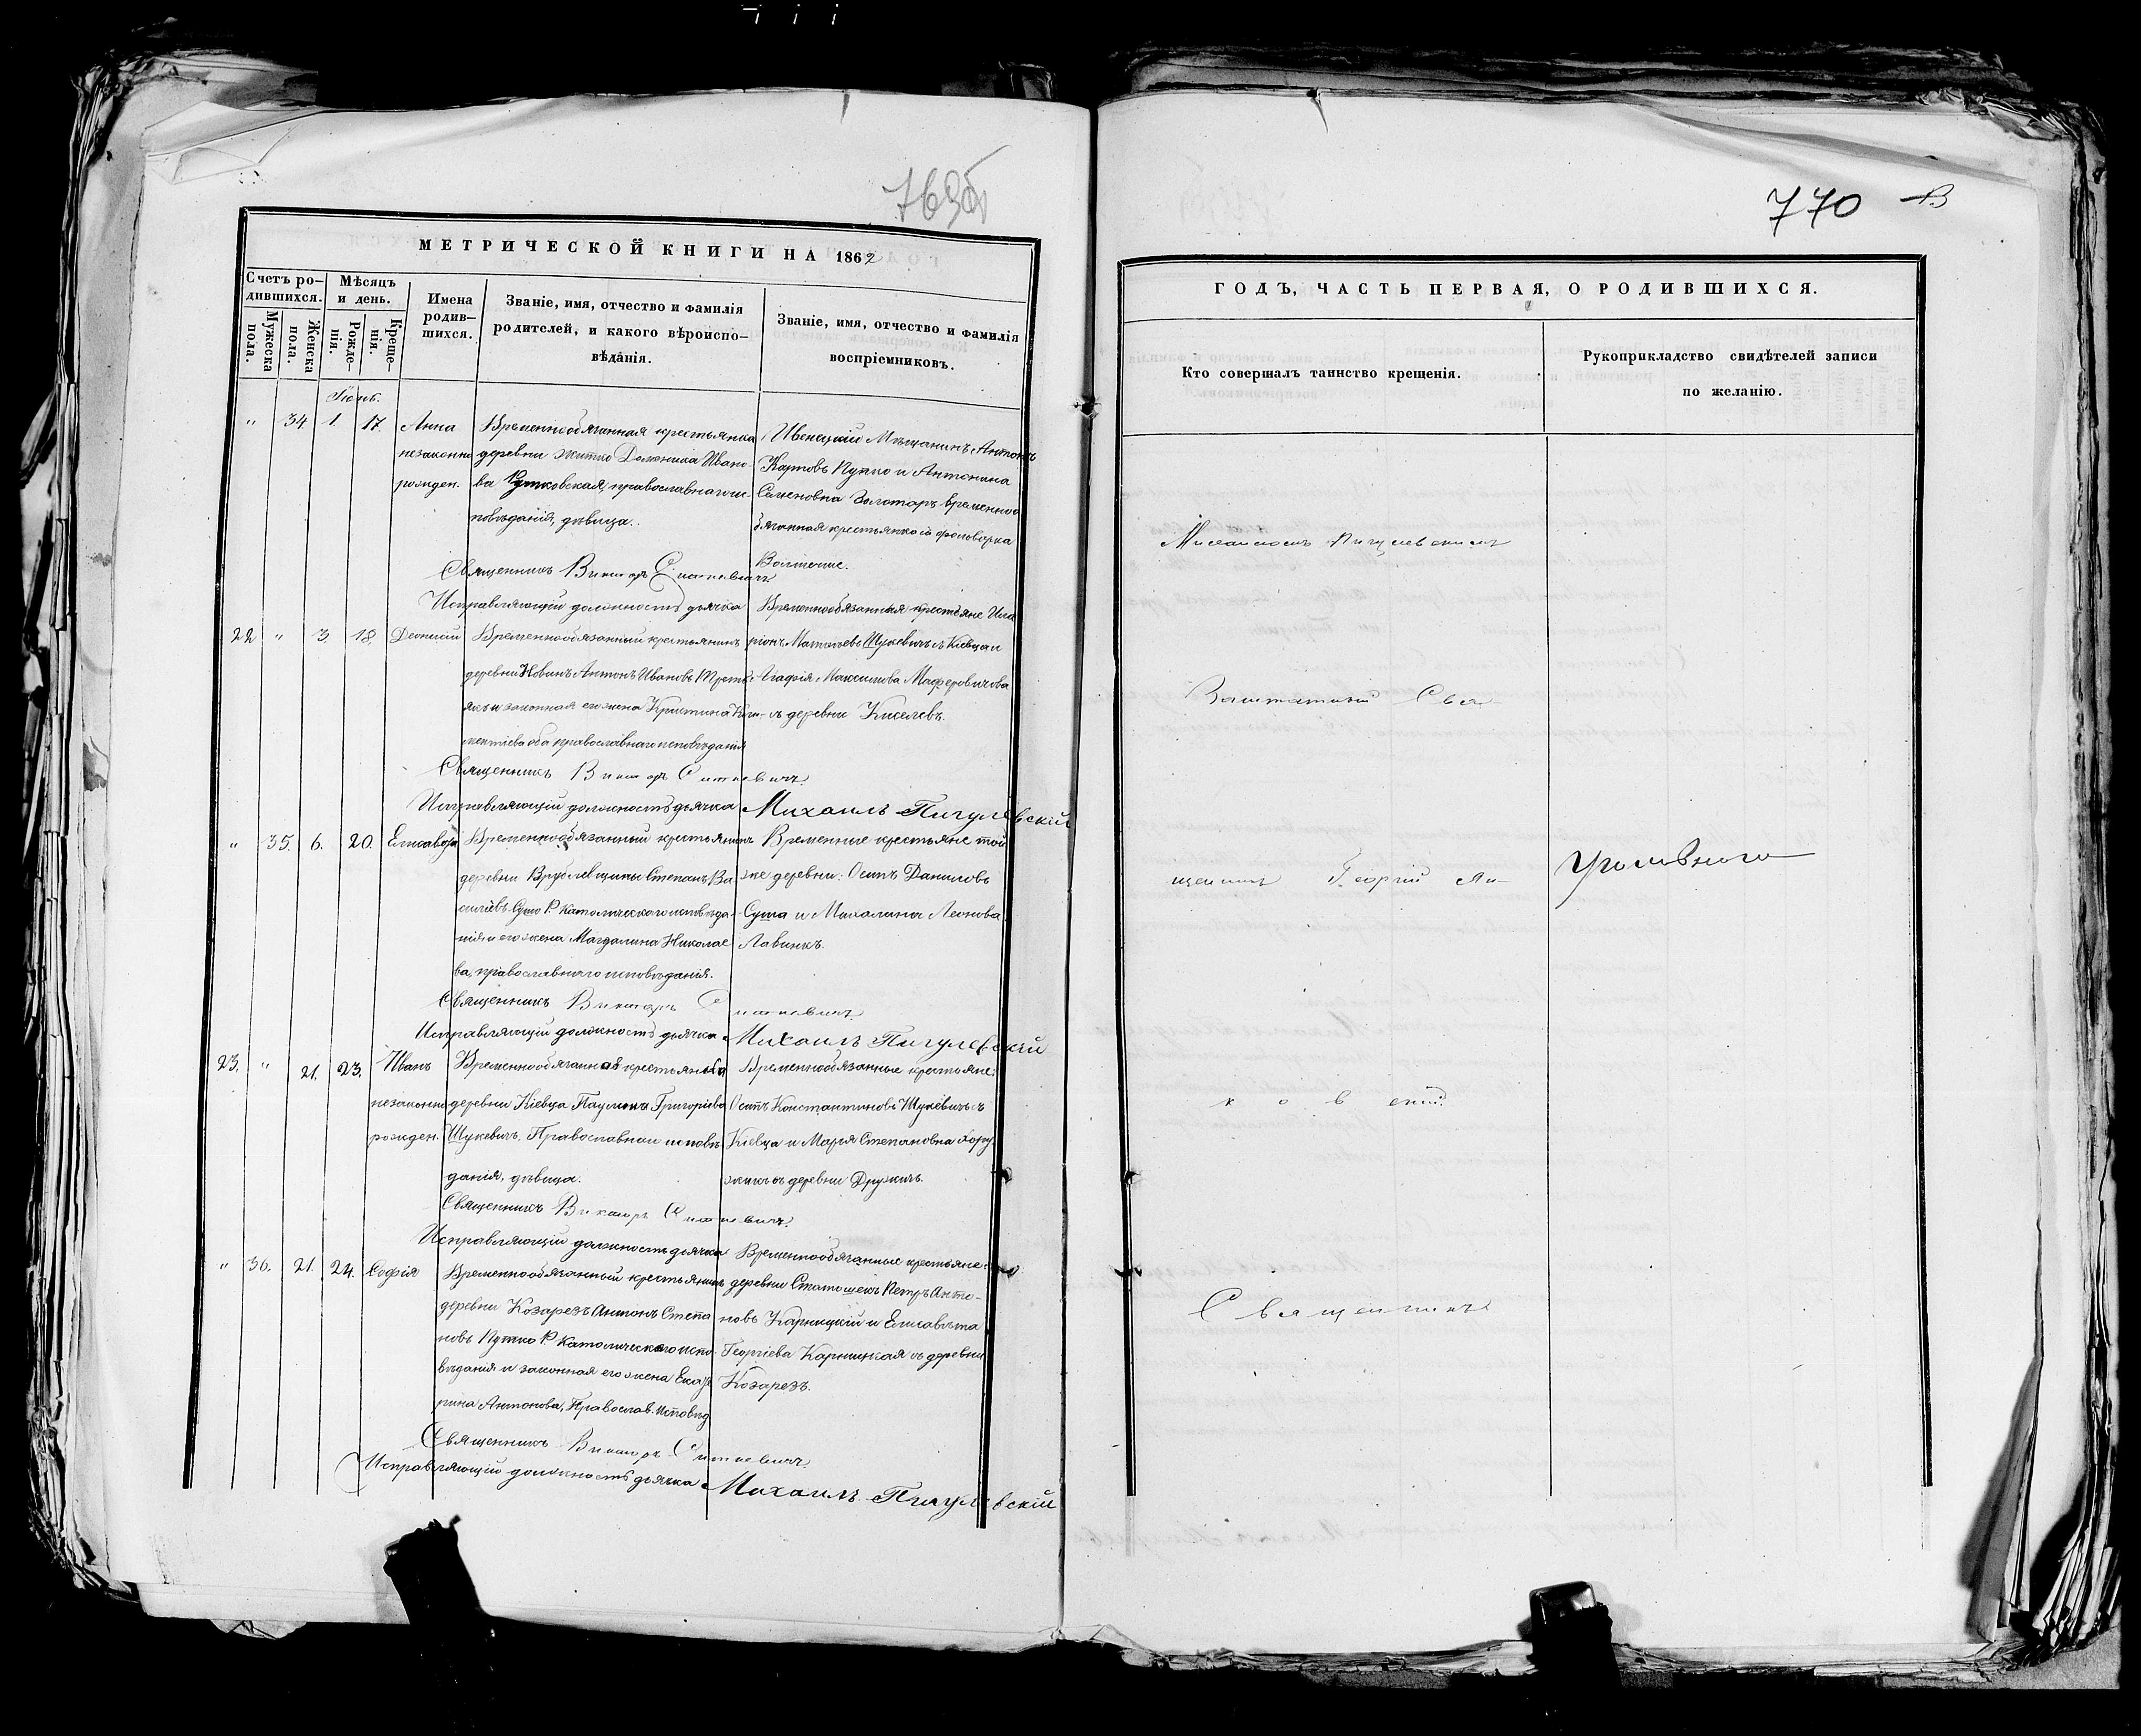 769 об
МЕТРИЧЕСКОЙ КНИГИ НА 1862
Счетъ ро-
дившихся.
Мужеска
пола.
Женска
пола.
Мѣсяцъ
и день.
Рожде-
нія.
Креще-
нія.
Имена
родив-
шихся.
Званіе, имя, отчество и фамилія
родителей, и какого вѣроиспо-
вѣданія.
Званіе, имя, отчество и фамилія
воспріемниковъ.
Іюнь.
" 34 1. 17. Анна
незаконно
рожден.
Временнообязанная крестьянка
деревни Житко Доминика Ивано-
ва Рутковская, православнаго ис-
повѣданія, дѣвица.
Ивенецкій Мѣщанинъ Антонъ
Карповъ Пупко и Антонина
Семеновна Золотарь временноо
бязанная крестьянка фольворка
Священникъ Викторъ Ситкевичъ
Исправляющій должность дьячка
22 " 3 18. Деонисій
Временнообязанный крестьянинъ
деревни Новинъ Антонъ Ивановъ Трить
якъ и законная его жена Кристина Кли-
ментіева оба православнаго исповѣданія
Временнообязанныя крестьяне Ила
ріонъ Матвѣевъ Шукевичъ съ Кіевца и
Агафія Максимова Маферовичова
съ деревни Киселевъ.
Священникъ Викторъ Ситкевичъ
Исправляющій должность дьячка Михаилъ Пигулевскій
" 35. 6. 20. Елисавета
Временнообязанный крестьянинъ
деревни Врублевщины Степанъ Ва-
силіевъ Суша Р. Католическаго исповѣда-
нія и его жена Магдалина Николае
ва, православнаго исповѣданія.
Временные крестьяне той
же деревни: Осипъ Даниловъ
Суша и Михалина Леонова
Лавникъ.
Священникъ Викторъ Ситкевичъ
Исправляющій должность дьячка Михаилъ Пигулевскій
23. " 21. 23. Иванъ
незаконно
рожден.
Временнообязанная крестьянка
деревни Кіевца Паулина Григоріева
Шукевичъ, Православнаго исповѣ
данія, дѣвица.
Временнообязанные крестьяне:
Осипъ Константиновъ Шукевичъ съ
Кіевца и Марья Степановна Хору
жикъ съ деревни Дружичъ.
Священникъ Викторъ Ситкевичъ
Исправляющій должность дьячка
" 36. 21. 24. Софія
Временнообязанный крестьянинъ
деревни Козарезъ Антонъ Степа
новъ Пупко Р. Католическаго испо-
вѣданія и законная его жена Екате
рина Антонова, Православ. Исповѣд
Временнообязанные крестьяне:
деревни Антошекъ Петръ Анто-
новъ Карницкій и Елисавета
Георгіева Карницкая съ деревни
Козарезъ.
Священникъ Викторъ Ситкевичъ
Исправляющій должность дьячка Михаилъ Пигулевскій
770
ГОДЪ, ЧАСТЬ ПЕРВАЯ, О РОДИВШИХСЯ.
Кто совершалъ таинство крещенія.
Рукоприкладство свидѣтелей записи
по желанію.
Заштатный Свя-
щенникъ Георгій Ли-
ковскій
Священникъ